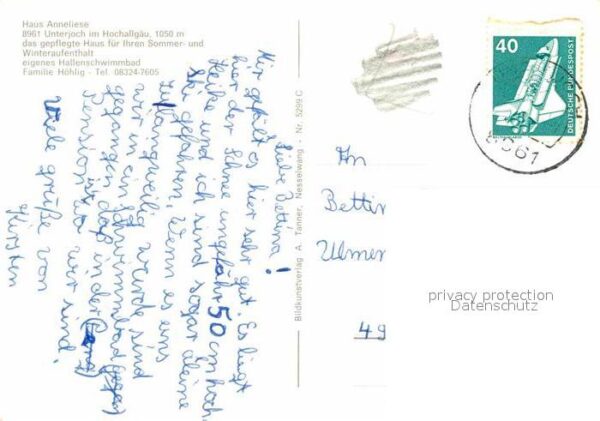 Haus Anneliese
8961 Unterjoch im Hochallgäu, 1050 m
das gepflegte Haus für Ihren Sommer- und
Winteraufenthalt
eigenes Hallenschwimmbad
Familie Höhlig - Tel. 08324-7605
Liebe Bettina!
Mir gefällt es hier sehr gut. Es liegt
hier der Schnee ungefähr 50 cm hoch.
Heike und ich sind sogar alleine
Ski gefahren. Wenn es uns
zu langweilig wurde sind
wir in ein Schwimmbad gegangen
gegangen daß in der
Pension ist wo wir sind.
Viele grüße von
Kürsten
Bildkunstverlag A. Tanner, Nesselwang - Nr. 5299 C
An
Bettin
Ulmer
49
40
DEUTSCHE BUNDESPOST
8961
privacy protection
Datenschutz